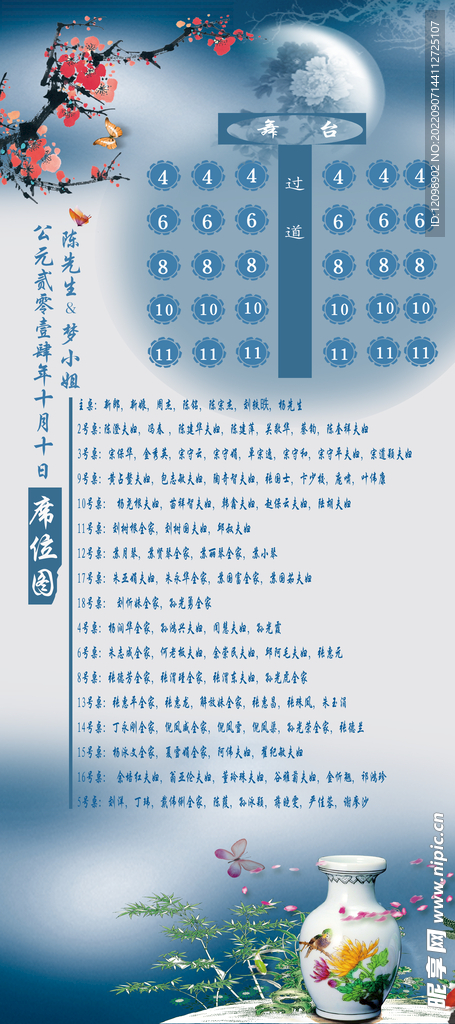 ID:12098902 NO:20220907144112725107
舞 台
过
道
4 4 4 4 4 4
6 6 6 6 6 6
8 8 8 8 8 8
10 10 10 10 10 10
11 11 11 11 11 11
陈先生&梦小姐
公元贰零壹肆年十月十日
席位图
主桌：新郎，新娘，周杰，陈铭，陈宗杰，刘轶晓，杨先生
2号桌：陈澄夫妇，冯春，陈建华夫妇，陈建萍，吴敬华，蔡钧，陈奎祥夫妇
3号桌：宗保华，金秀英，宗守云，宗守娟，单宗远，宗守和，宗守平夫妇，宗道颖夫妇
9号桌：黄占整夫妇，包志敏夫妇，陶寿智夫妇，张国士，卞少敏，庞啸，叶伟康
10号桌： 杨尧根夫妇，苗祥智夫妇，韩鑫夫妇，赵保云夫妇，陆朝夫妇
11号桌：刘树根全家，刘树国夫妇，邱敏夫妇
12号桌：景月琴，景贤琴全家，景丽琴全家，景小琴
17号桌：朱亚娟夫妇，朱永华全家，景国富全家，景国茹夫妇
18号桌： 刘忻妹全家，孙光勇全家
4号桌：杨润华全家，孙鸿兴夫妇，周慧夫妇，孙光霞
6号桌：朱志成全家，何老板夫妇，金荣民夫妇，邱阿毛夫妇，张惠元
8号桌：张德芳全家，张渭锺全家，张渭东夫妇，孙光虎全家
13号桌：张惠平全家，张惠龙，解放妹全家，张惠昌，张珠凤，朱玉涓
14号桌：丁永刚全家，倪凤威全家，倪凤雪，倪凤梁，孙光荣全家，张德兰
15号桌：杨冰文全家，夏雪娟全家，阿伟夫妇，翟纪敏夫妇
16号桌： 金培红夫妇，翁亚伦夫妇，董玲珠夫妇，谷雅菊夫妇，金忻魁，祁鸿珍
5号桌：刘洋，丁玮，戴伟俐全家，陈蓓，孙冰颖，蒋晓雯，严佳苓，谢黎沙
昵享网 www.nipic.cn